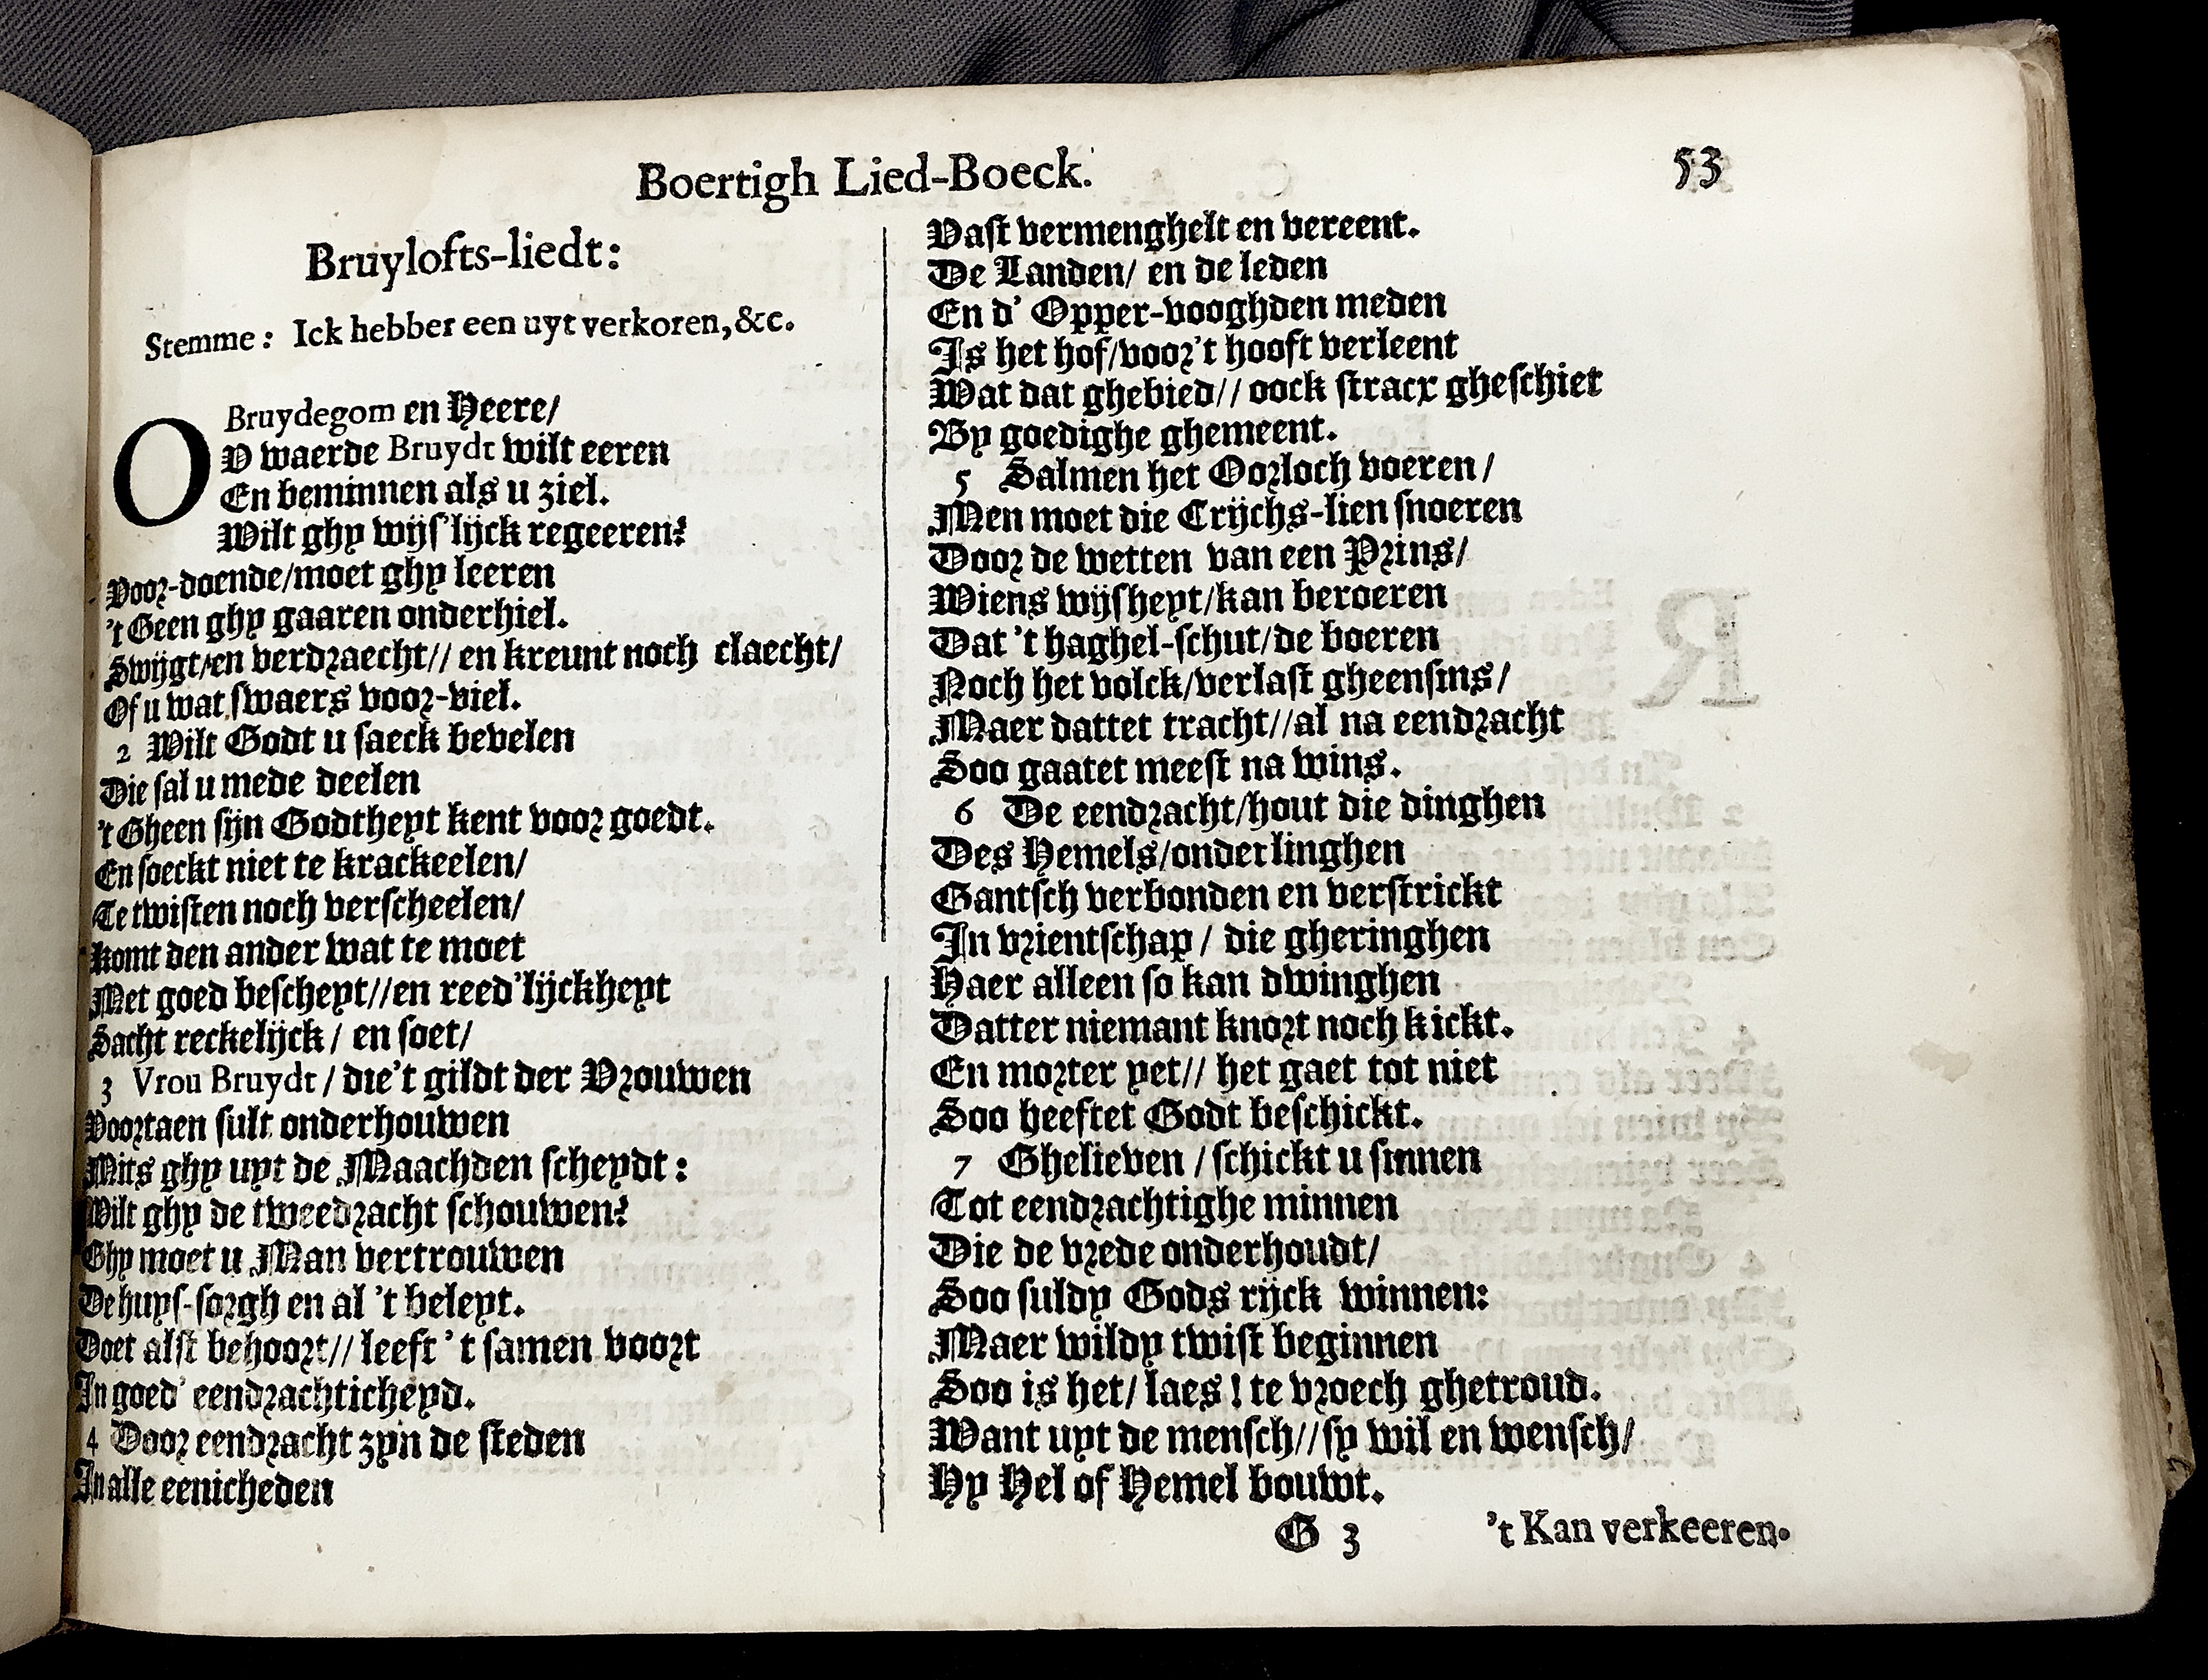 Boertigh Lied-Boeck.
53
Bruylofts-liedt:
Stemme: Ick hebber een uyt verkoren, &c.
O Bruydegom en Heere/
V waerde Bruydt wilt eeren
En beminnen als u ziel.
Wilt ghy wijs'lijck regeeren?
Voor-doende/moet ghy leeren
't Geen ghy gaaren onderhiel.
Swijgt/en verdraecht// en kreunt noch claecht/
Of u wat swaers voor-viel.
2 Wilt Godt u saeck bevelen
Die sal u mede deelen
't Gheen sijn Godtheyt kent voor goedt.
En soeckt niet te krackeelen/
Te twisten noch verscheelen/
Komt den ander wat te moet
Met goed bescheyt//en reed'lijckheyt
Sacht reckelijck / en soet/
3 Vrou Bruydt / die't gildt der Vrouwen
Voortaen sult onderhouwen
Mits ghy uyt de Maachden scheydt:
Wilt ghy de tweedracht schouwen?
Ghy moet u Man vertrouwen
De huys-sorgh en al 't beleyt.
Doet alst behoort// leeft 't samen voort
In goed' eendrachticheyd.
4 Door eendracht zyn de steden
In alle eenicheden
Vast vermenghelt en vereent.
De Landen/ en de leden
En d' Opper-vooghden meden
Is het hof/voor't hooft verleent
Wat dat ghebied// oock stracx gheschiet
By goedighe ghemeent.
5 Salmen het Oorloch voeren/
Men moet die Crijchs-lien snoeren
Door de wetten van een Prins/
Wiens wijsheyt/kan beroeren
Dat 't haghel-schut/de boeren
Noch het volck/verlast gheensins/
Maer dattet tracht//al na eendracht
Soo gaatet meest na wins.
6 De eendracht/hout die dinghen
Des Hemels/onderlinghen
Gantsch verbonden en verstrickt
In vrientschap / die gheringhen
Haer alleen so kan dwinghen
Datter niemant knort noch kickt.
En morter yet// het gaet tot niet
Soo heeftet Godt beschickt.
7 Ghelieven / schickt u sinnen
Tot eendrachtighe minnen
Die de vrede onderhoudt/
Soo suldy Gods rijck winnen:
Maer wildy twist beginnen
Soo is het/ laes! te vroech ghetroud.
Want uyt de mensch//sy wil en wensch/
Hy Hel of Hemel bouwt.
G 3
't Kan verkeeren.